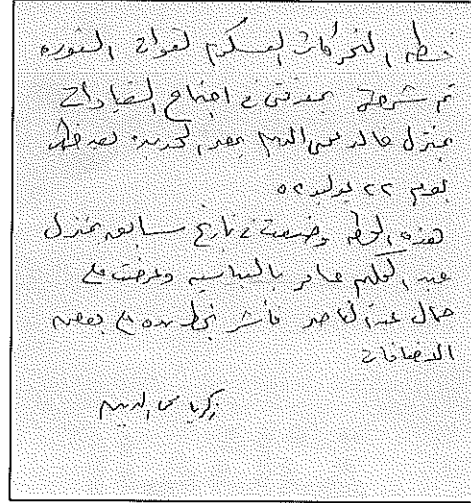 خطه التحركات العسكريه لقوات الثوره
تم شرحها بمعرفتى فى اجتماع القيادات
بمنزل خالد محى الدين بمصر الجديده بعد ظهر
يوم ٢٢ يوليه ٥٢
هذه الخطه وضعت فى تاريخ سابق بمنزل
عبد الحكيم عامر بالعباسيه وعرضت على
جمال عبد الناصر فأشر بخط يده على بعض
الاضافات
زكريا محى الدين